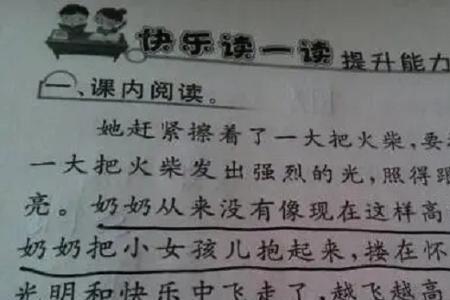 快乐读一读 提升能力
一、课内阅读。
她赶紧擦着了一大把火柴，要
一大把火柴发出强烈的光，照得跟
亮。奶奶从来没有像现在这样高
奶奶把小女孩儿抱起来，搂在怀
光明和快乐中飞走了，越飞越高